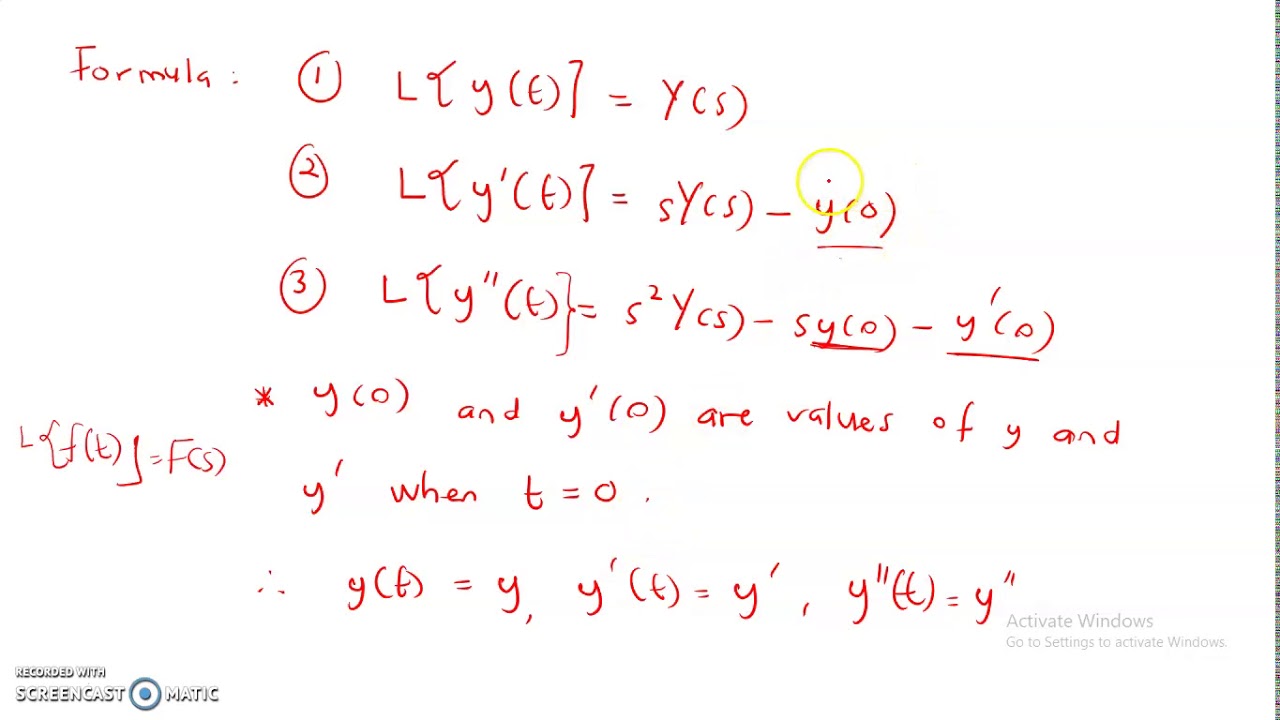 Formula : ① L{y(t)} = Y(s)
② L{y'(t)} = sY(s) - y(0)
③ L{y"(t)} = s²Y(s) - sy(0) - y'(0)
* y(0) and y'(0) are values of y and
L{f(t)} = F(s)
y' when t = 0 .
∴ y(t) = y, y'(t) = y' , y"(t) = y"
Activate Windows
Go to Settings to activate Windows.
RECORDED WITH
SCREENCAST MATIC